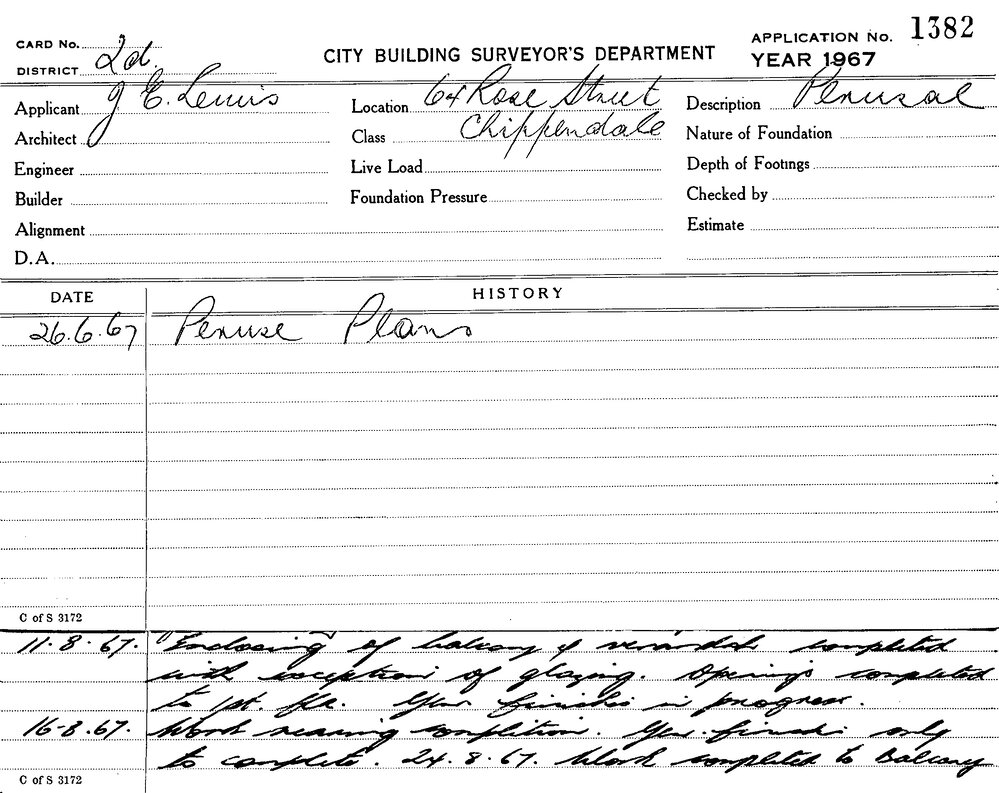 CARD No. 2d.
DISTRICT
CITY BUILDING SURVEYOR'S DEPARTMENT
APPLICATION No. 1382
YEAR 1967
Applicant J E. Lewis
Location 64 Rose Street
Description Perusal
Architect
Class Chippendale
Nature of Foundation
Engineer
Live Load
Depth of Footings
Builder
Foundation Pressure
Checked by
Alignment
Estimate
D.A.
DATE HISTORY
26.6.67 Peruse Plans
C of S 3172
11.8.67. Enclosing of balcony & verandah completed
with exception of glazing. Openings completed
to 1st. flr. finishes in progress.
16-8.67. Work nearing completion. only
to complete. 24.8.67. Work completed to Balcony
C of S 3172